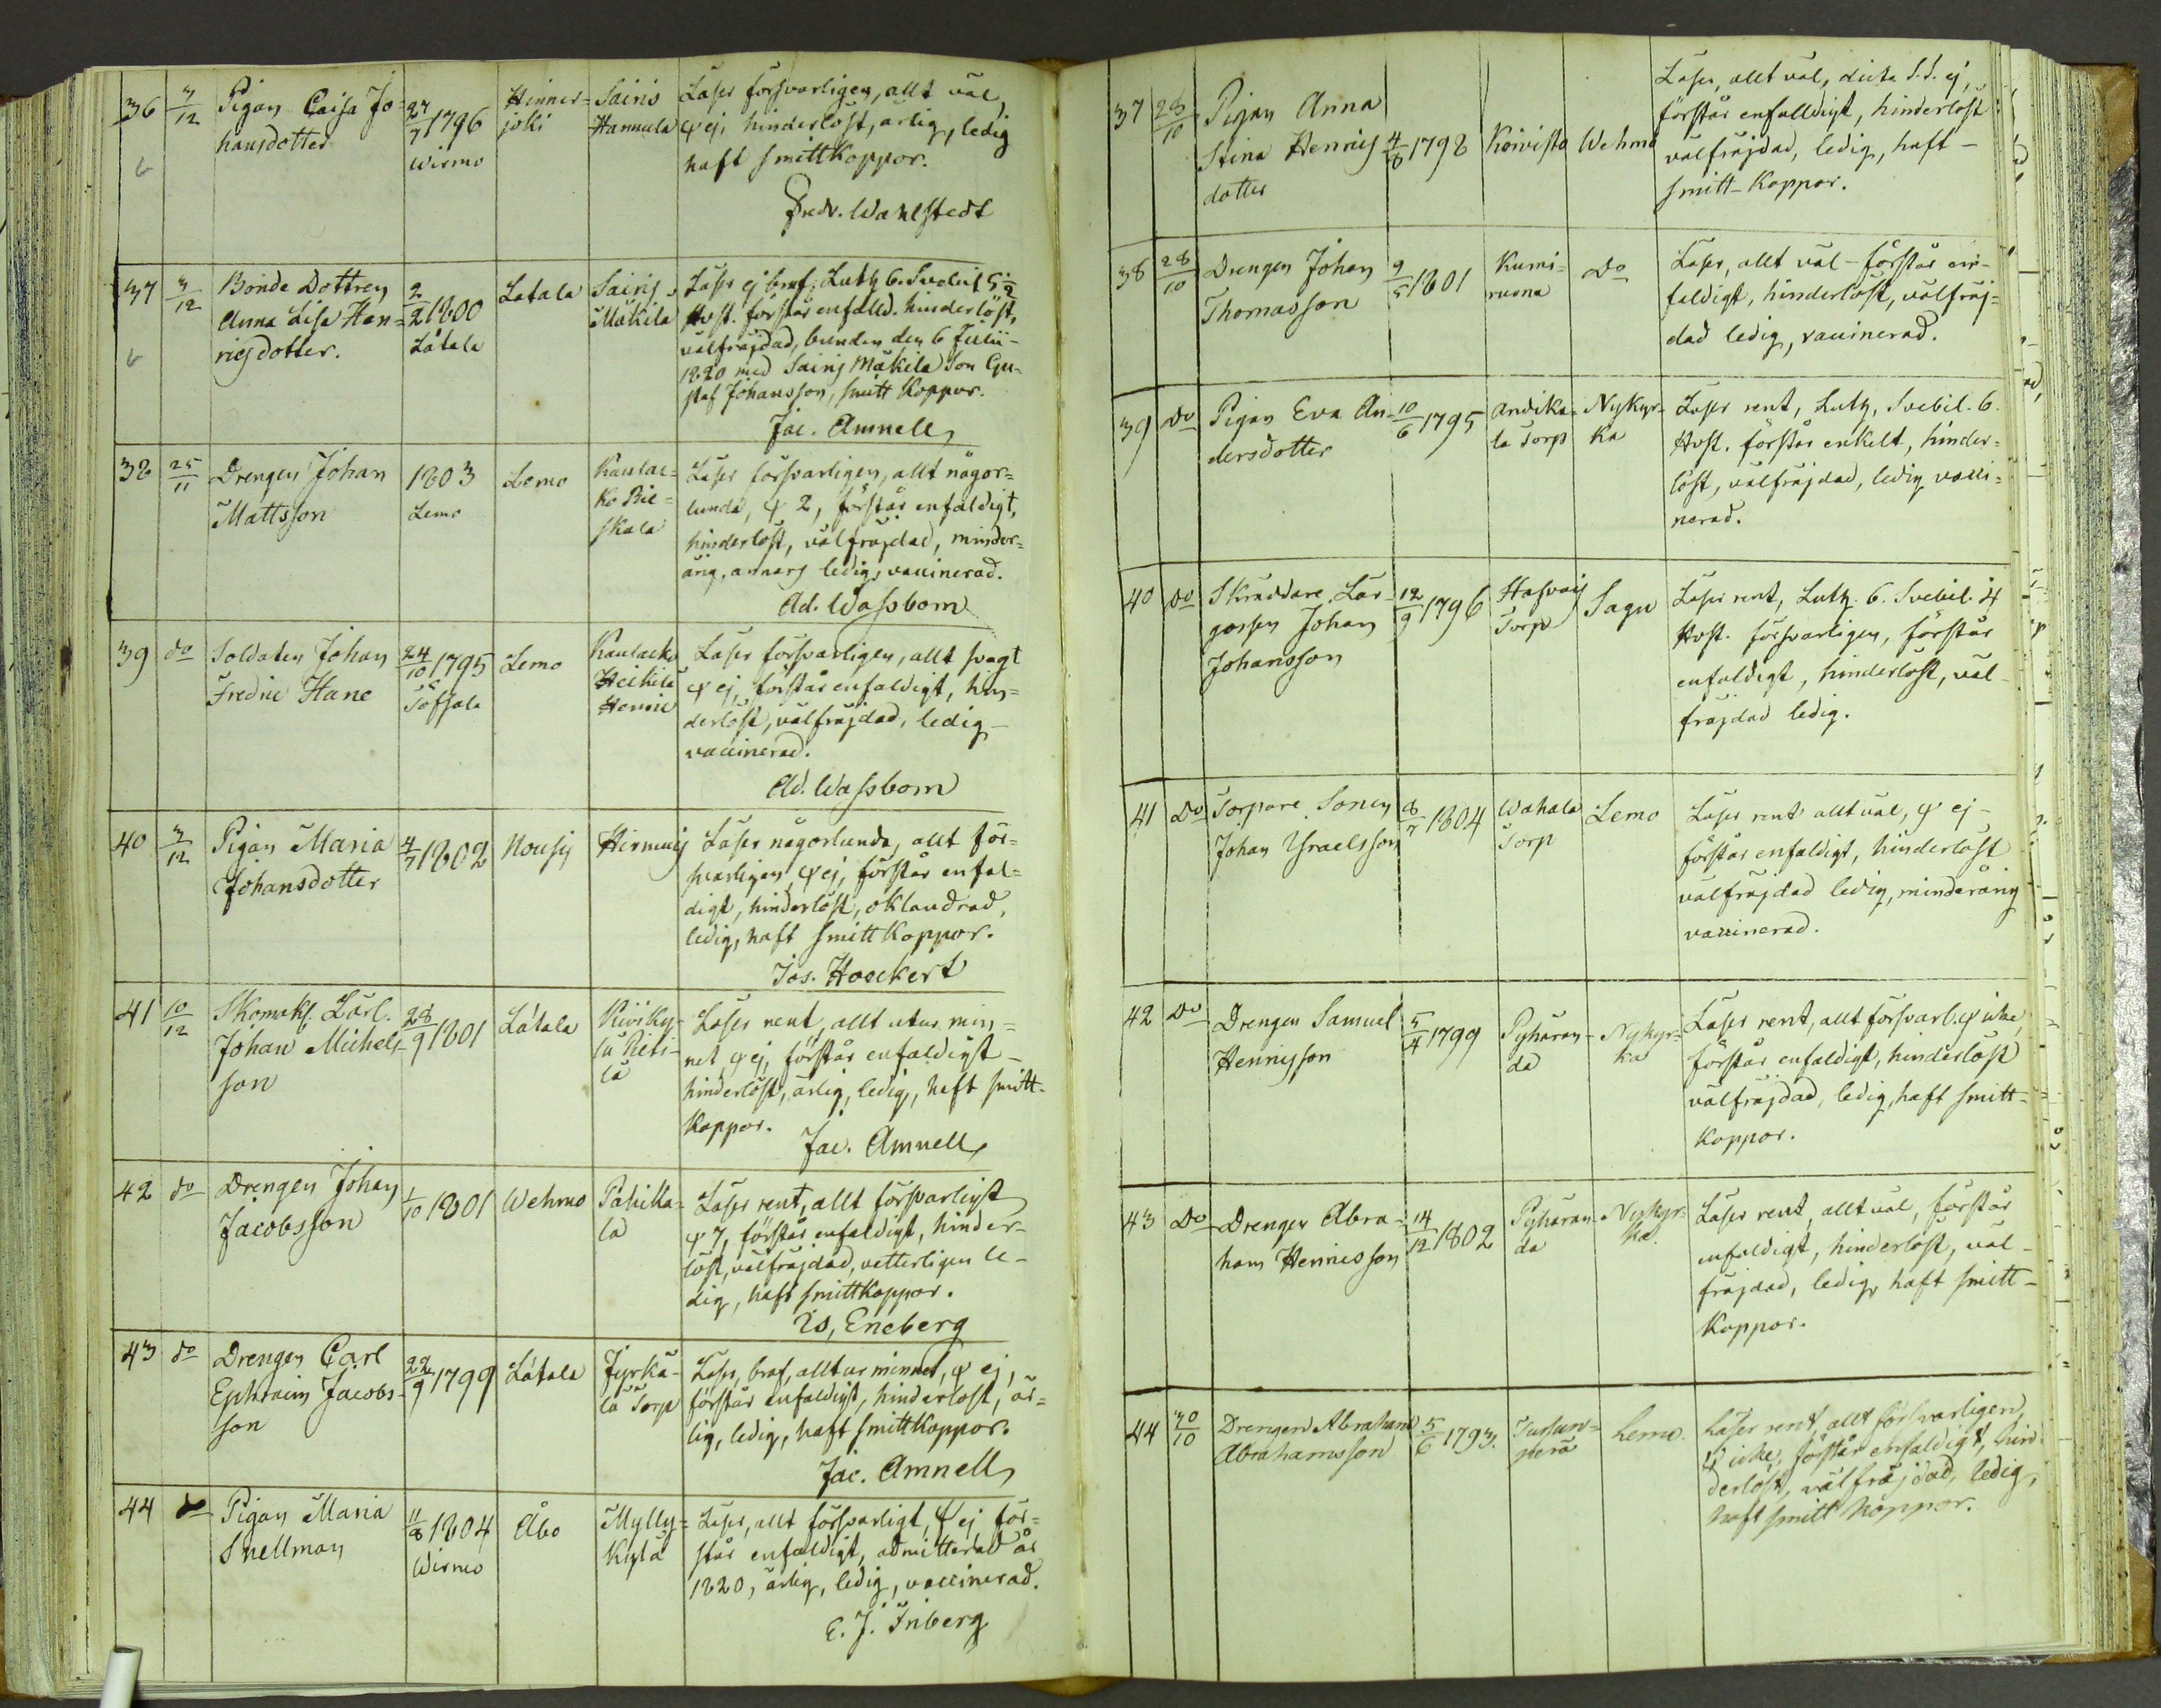 36 3/12 Pigan Caisa Jo=
hansdotter
27/7 1796
Wirmo
Hinner=
joki
Sairis
Hannula
Läser försvarligen, allt väl,
φ ej, hinderlöst, ärlig, ledig
haft smittkoppor.
Fredr. Wahlstedt
37 3/12 Bonde Dottren
Anna Lisa Hen=
ricsdotter.
2/2 1800
Låtala
Latala
Sairis
Mäkilä
Läser ej braf, Luth. 6. Svebil. 5 1/2
Hvst. förstår enfalld. hinderlöst,
välfräjdad, bunden den 6 Julii
1820 med Sairis Mäkilä Son Gu=
staf Johansson, smitt Koppor.
Jac. Amnell
38 25/11 Drengen Johan
Mattsson
1803
Lemo
Lemo
Kaulac=
ko Pie=
skala
Läser försvarligen, allt någor=
lunda, φ 2, förstår enfaldigt,
hinderlöst, välfräjdad, minder=
årig, annars ledig, vaccinerad.
Ad. Wassbom
39 do Soldaten Johan
Fredric Hane
24/10 1795
Töfsala
Lemo
Kaulacko
Heikilä
Henric
Läser försvarligen, allt svagt
φ ej, förstår enfaldigt, hin=
derlöst, välfräjdad, ledig
vaccinerad.
Ad. Wassbom
40 3/12 Pigan Maria
Johansdotter
4/7 1802
Nousis
Hirmuis
Läser någorlunda, allt för=
svarligen, φ ej, förstår enfal=
digt, hinderlöst, oklandrad,
ledig, haft smittkoppor.
Jos. Hoeckert
41 10/12 Skomak. Lärl.
Johan Michels
son
28/9 1801
Låtala
Riviky=
lä Peti=
lä
Läser rent, allt utur min=
net, φ ej, förstår enfaldigt
hinderlöst, ärlig, ledig, haft smitt=
koppor.
Jac. Amnell
42 do Drengen Johan
Jacobsson
1/10 1801
Wehmo
Pahikka=
la
Läser rent, allt försvarligt
φ 7, förstår enfaldigt, hinder=
löst, välfräjdad, vetterligen le=
dig, haft smittkoppor.
Is, Eneberg
43 do Drengen Carl
Ephraim Jacobs=
son
22/9 1799
Låtala
Jyrkä=
lä Torp
Läser, braf, allt ur minnet, φ ej,
förstår enfaldigt, hinderlöst, är=
lig, ledig, haft smittkoppor.
Jac. Amnell
44 do Pigan Maria
Snellman
11/8 1804
Wirmo
Åbo
Mylly=
kylä
Läser, allt försvarligt, φ ej för=
står enfaldigt, admitterad år
1820, ärlig, ledig, vaccinerad.
E. J. Friberg
37 28/10 Pigan Anna
Stina Henrics
dotter
4/8 1798
Koivisto
Wehmo
Läser, allt väl, dicta S.S. ej,
förstår enfalldigt, hinderlöst
välfräjdad, ledig, haft
smitt-koppor.
38 28/10 Drengen Johan
Thomasson
9/5 1801
Kumi=
ruona
Do
Läser, allt väl - förstår en=
faldigt, hinderlöst, välfräj=
dad ledig, vaccinerad.
39 Do Pigan Eva An=
dersdotter
10/6 1795
Andika=
la Torp
Nykyr=
ka
Läser rent, Luth, Svebil. 6.
Hvst. förstår enkelt, hinder=
löst, välfräjdad, ledig vacci=
nerad.
40 Do Skräddare Lär=
gossen Johan
Johansson
12/9 1796
Hasvois
Torp
Sagu
Läser rent, Luth. 6. Svebil. 4
Hvst. försvarligen, förstår
enfaldigt, hinderlöst, väl
fräjdad ledig.
41 Do Torpare Sonen
Johan Ysraelsson
8/7 1804
Wahala
Torp
Lemo
Läser rent allt väl, φ ej
förstår enfaldigt, hinderlöst
välfräjdad ledig, minderårig
vaccinerad.
42 Do Drengen Samuel
Henricsson
5/4 1799
Pyhäran=
da
Nykyr=
ka
Läser rent, allt försvarl. φ icke,
förstår enfaldigt, hinderlöst
välfräjdad, ledig, haft smitt=
koppor.
43 Do Drengen Abra=
ham Henricsson
14/12 1802
Pyhäran=
da
Nykyr=
ka.
Läser rent, allt väl, förstår
enfaldigt, hinderlöst, väl
fräjdad, ledig, haft smitt=
Koppor.
44 30/10 Drengen Abraham
Abrahamsson
5/6 1793.
Tursun=
perä
Lemo.
Läser rent, allt försvarligen,
φ icke, förstår enfaldigt, hin=
derlöst, välfräjdad, ledig,
haft smitt koppor.